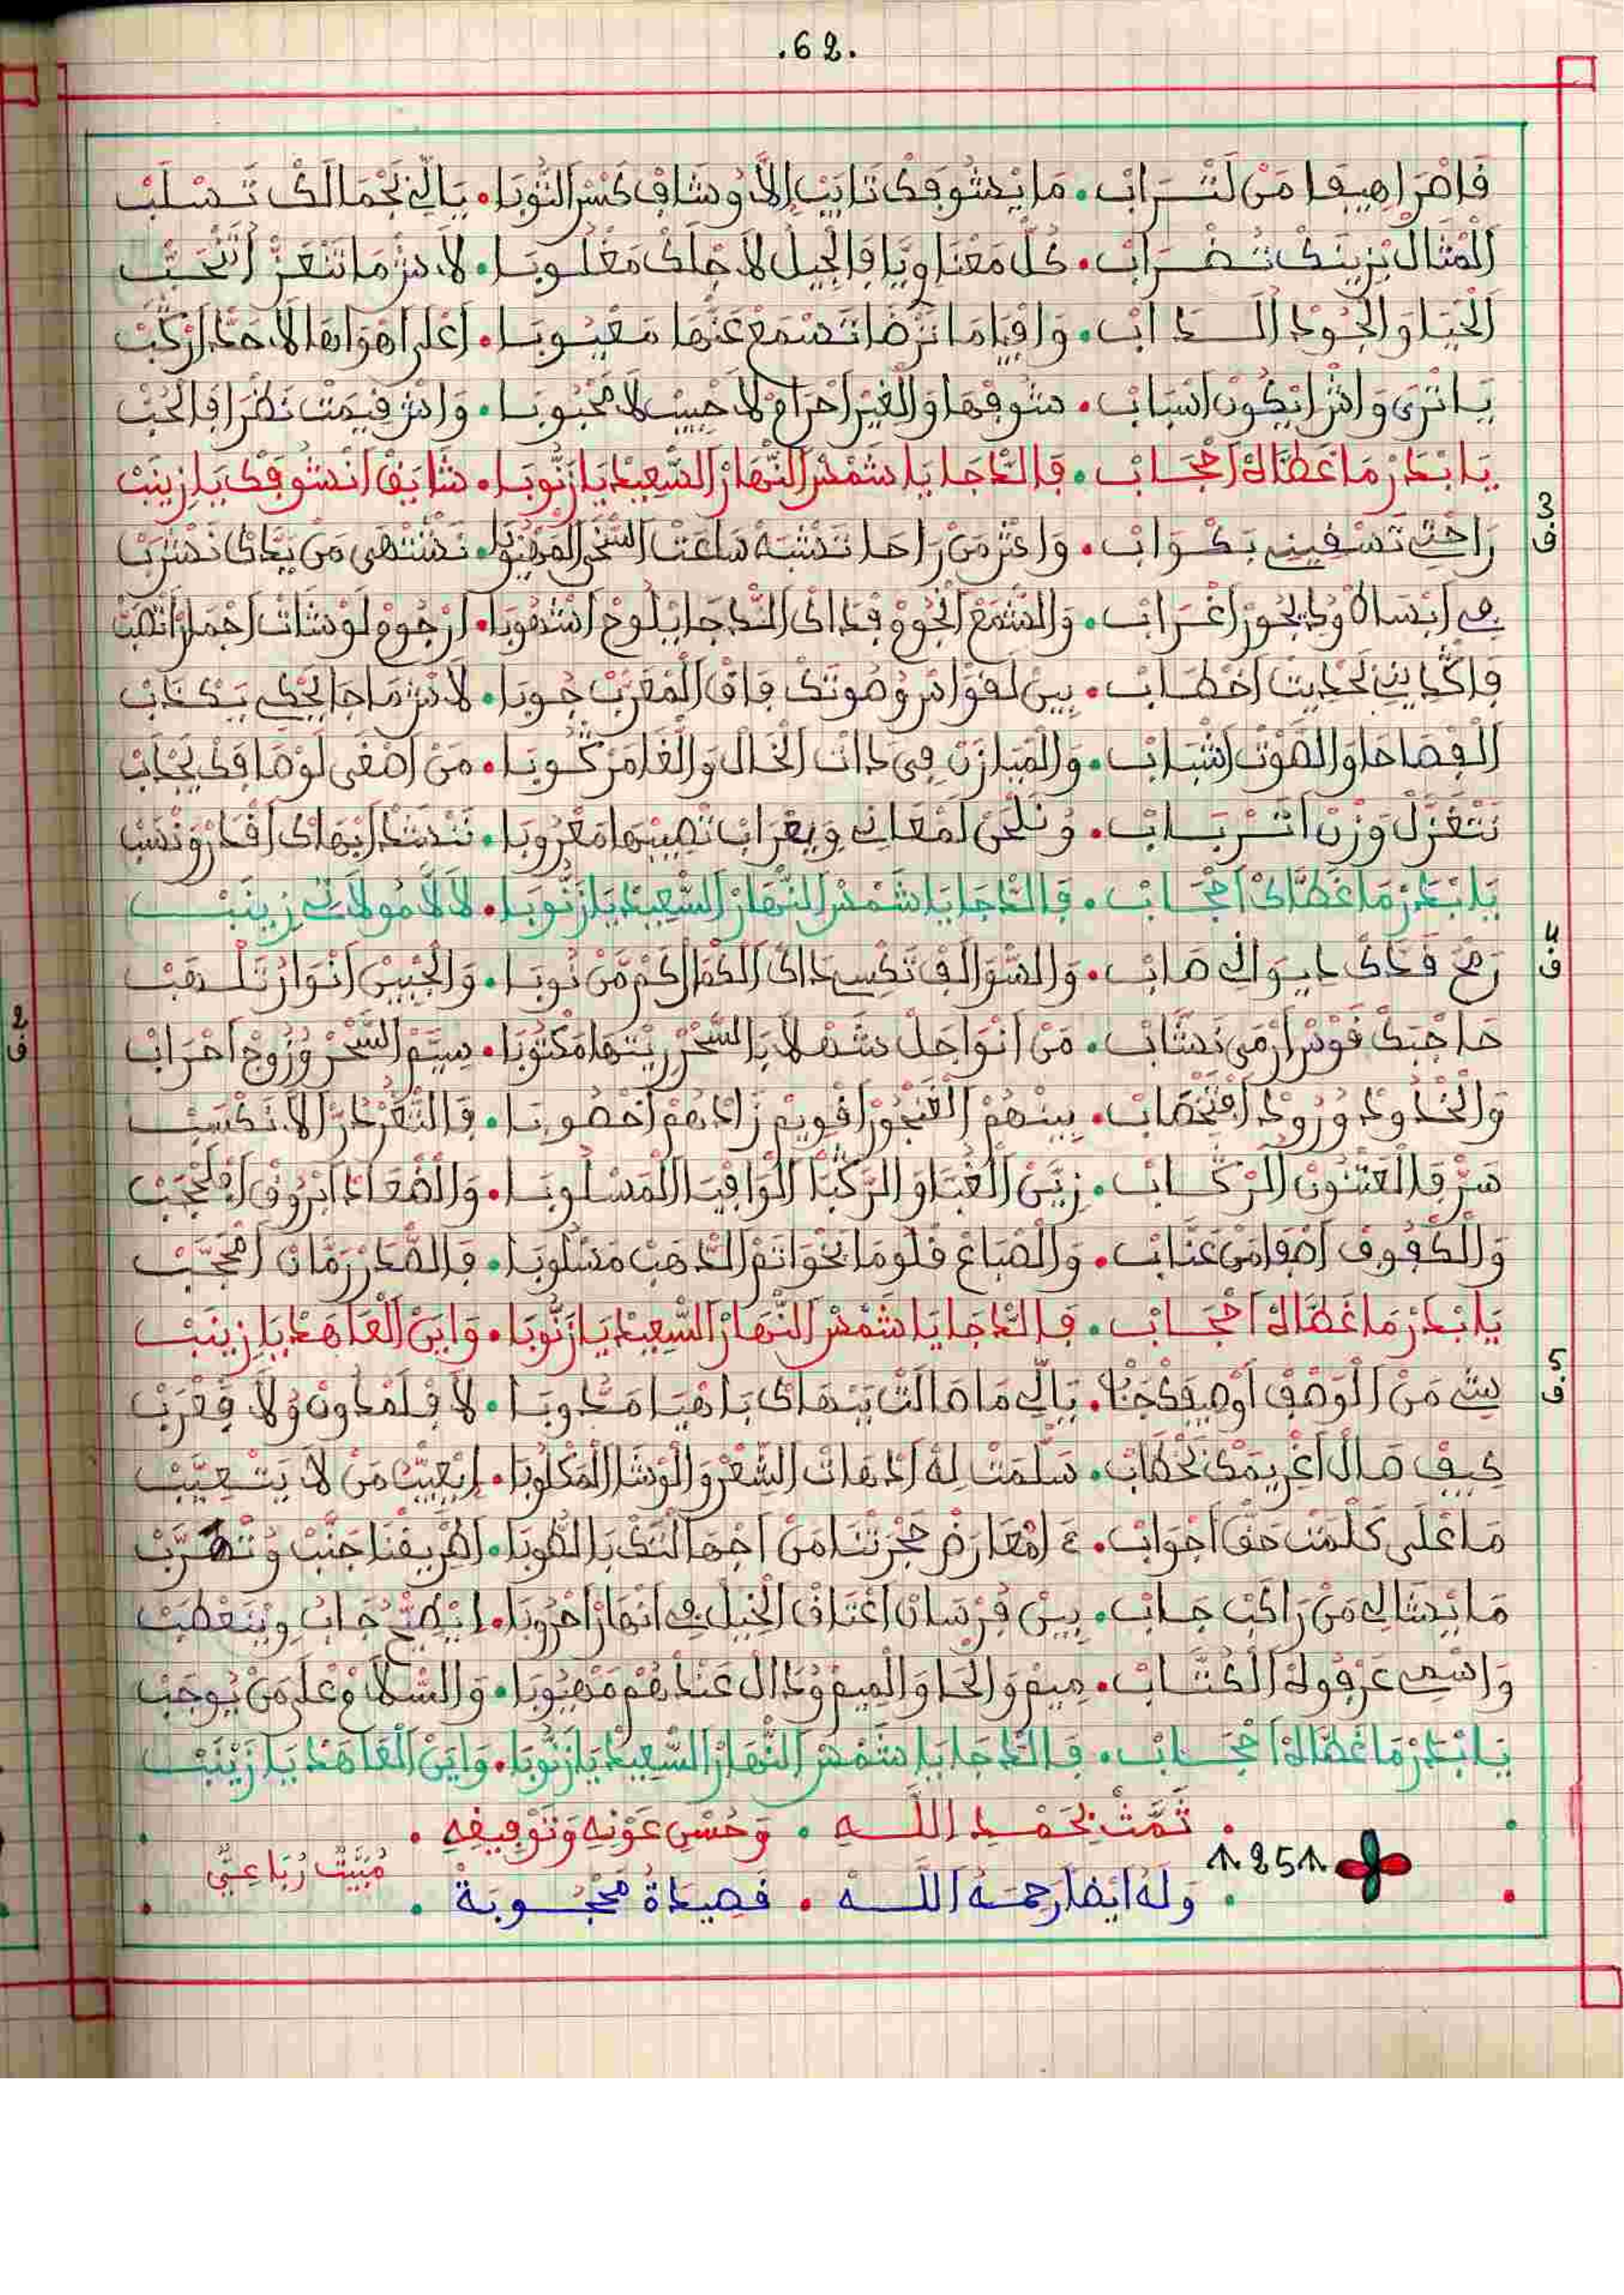 .62.
فَاصْرَاهِيفَا مَنْ لَتْــرَابْ • مَا يْشُوفَكْ تَايَبْ إِلاَّ وشَافْ كَسْرْ التُّوبَا • يَالِّي بَجْمَالَكْ تَسْلَبْ
الْمْثَالْ بْزِينَكْ تَـضْـرَابْ • كُلّْ مَعْنَا وِيَّا فَالْجِيلْ لَاجْلَكْ مَغْلُوبَا • لاَشْ مَا تَتْعَزّْ اتْنْحَبّْ
الْحْيَا وَالْجُودْ الــدَابْ • وَافْيَا مَا تَرْضَا تَسْمَعْ عَنْهَا مَعْيُوبَا • اعْلَى اهْوَاهَا لَاحَدّْ ارْكَبْ
يَا تْرَى وَاشْ ايْكُونْ اسْبَابْ • شُوفْهَا وَالْغِيرْ احْرَامْ لَا حْبِيبْ لَا مَحْبُوبَا • وَاشْ قِيمَتْ نَظْرَا فَالْحُبّْ
يَا بْدَرْ مَا غَطَّاهْ احْجَـابْ • فَالدّْجَا يَا شَمْسْ النّْهَارْ السّْعِيدْ يَا زَنُّوبَا • شَايَقْ انْشُوفَكْ يَا زِينَبْ
3
ف
رَاحْتِي تَسْقِينِي بَكْوَابْ • وَاعْشَرْ مَنْ رَاحَا تَشْبَهْ سَاعَتْ السّْخَى الْمَوْهُوبَا • نَشْتْهَى مَنْ يَدَّكْ نَشْرَبْ
فِي ابْسَاطْ وُدِيجُورْ اغْرَابْ • وَالشْمَعْ الْجُوقْ قْدَاكْ الدّْجَا يْلُوحْ اشْهُوبَا • ارْجُومْ لَوْشَاتْ اجْمَارْ اتْهَبّْ
وَاكْدَايْنِي لَحْدِيتْ اخْطَابْ • بِينْ لَقْوَاسْ وُصُوتَكْ فَاقْ الْمَغْرَبْ جُوبَا • لَاشْ مَا جَا يَحْكِي بَكْذَابْ
الْفْصَاحَا وَالصُّوتْ اشْبَابْ • وَالْمْيَازَنْ فِي دَاتْ الْخَالْ وَالْغَا مَرْكُوبَا • مَنْ اصْغَى لُوهَا قَدْ يُجَابْ
نَتْغَزَّلْ وَزْنْ اتْـرْبَـابْ • وُنْلَحَّنْ امْعَانِي وِيعْرَابْ تْصِيبْهَا مَعْرُوبَا • نَنْشَدْ ابْهَاكْ افْكَارْ وَنْسَبْ
يَا بْدَرْ مَا غَطَّاكْ احْجَـابْ • فَالدّْجَا يَا شَمْسْ النّْهَارْ السّْعِيدْ يَا زَنُّوبَا • لَالَّا مُولَاتِي زِينَبْ
4
ف
رَمْحْ قَدَّكْ ايوَالِي صَابْ • وَالسّْوَالَفْ تَكْسِي دَاكْ الْكْمَالْ كَمْ مَنْ نُوبَا • وَالْجْبِينْ انْوَارْ تَلْهَبْ
حَاجْبَكْ قُوسْ ارْمَى نَشَّابْ • مَنْ انْوَاجَلْ شَهْلَا بَالسّْحَرْ رِيتْهَا مَكْتُوبَا • سِيَّمْ السّْحَرْ وُزُوجْ احْرَابْ
وَالْخْدُودْ وُرُودْ افْتَخْصَابْ • بِينْهُمْ الْغَنْجُورْ اقْوِيمْ زَادْهُمْ اخْصُوبَا • فَالثّْغَرْ دُرّْ الَا نَكْسَبْ
سَرّْ فَالْعَتْنُونْ الْرْكَــابْ • زِيَّنْ الْغَبَّا وَالرَّكْبَا الْوَافْيَا الْمَسْلُوبَا • وَالضْعَادْ ابْرُوقْ افْلَحْجَبْ
وَالْكْفُوفْ اصْفَا مَنْ عَنَّابْ • وَالصْبَاعْ قْلُومَا بَخْوَاتَمْ الدّْهَبْ مَسْلُوبَا • فَالصّْدَرْ رَمَّانْ امْحَجَّبْ
يَا بْدَرْ مَا غَطَّاهْ احْجَـابْ • فَالدّْجَا يَا شَمْسْ النّْهَارْ السّْعِيدْ يَا زَنُّوبَا • وَايْنْ الْعَاهَدْ يَا زِينَبْ
5
ف
شِي مَنْ الْوَصْفْ اوْصِيفَكْ جَابْ • يَالِّي مَا صَالَتْ بَبْهَاكْ بَاهْيَا مَنْدُوبَا • لَا فَلَمْدُونْ وُلَا فَعْرَبْ
كِيفْ صَالْ اغْرِيمَكْ بَخْطَابْ • سَلّْمَتْ لِهْ ادْهَاتْ الشّْعَرْ وَالْوْشَا الْمَكْلُوبَا • ايْعِيبْ مَنْ لَا يَتْعِيَّبْ
مَا عْلَى كَلْمَتْ حَقّْ اجْوَابْ • ءَ امْعَارَضْ حَجْرَتْنَا مَنْ اجْمَالْتَكْ بَالطُّوبَا • اطْرِيقْنَا جَنَّبْ وُتْهَرَّبْ
مَا يْشَالِي مَنْ رَاكَبْ جَابْ • بِينْ فُرْسَانْ اعْتَاقْ الْخِيلْ فِي انْهَارْ احْرُوبَا • ايْطِيحْ جَابُ وِيَنْعْطَبْ
وَاسْمِي عَرْفُوهْ الْكُتَّــابْ • مِيمْ وَالْحَا وَالْمِيمْ وُدَالْ عَنْدْهُمْ مَهْيُوبَا • وَالسّْلَامْ عْلَى مَنْ يُوجَبْ
يَا بْدَرْ مَا غَطَّاهْ احْجَـابْ • فَالدّْجَا يَا شَمْسْ النّْهَارْ السّْعِيدْ يَا زَنُّوبَا • وَايْنْ الْعَاهَدْ يَا زِينَبْ
• تَمَّتْ بِحَمْـدِ اللَّــهِ • وَحُسْنِ عَوْنِهِ وَتَوْفِيقِهِ •
251
مُبَيَّتْ رُبَاعِيّْ
• وَلَهُ ايضا رحمَـهُ اللَّــه • قصِيدَةُ مَحْجُـوبَة •